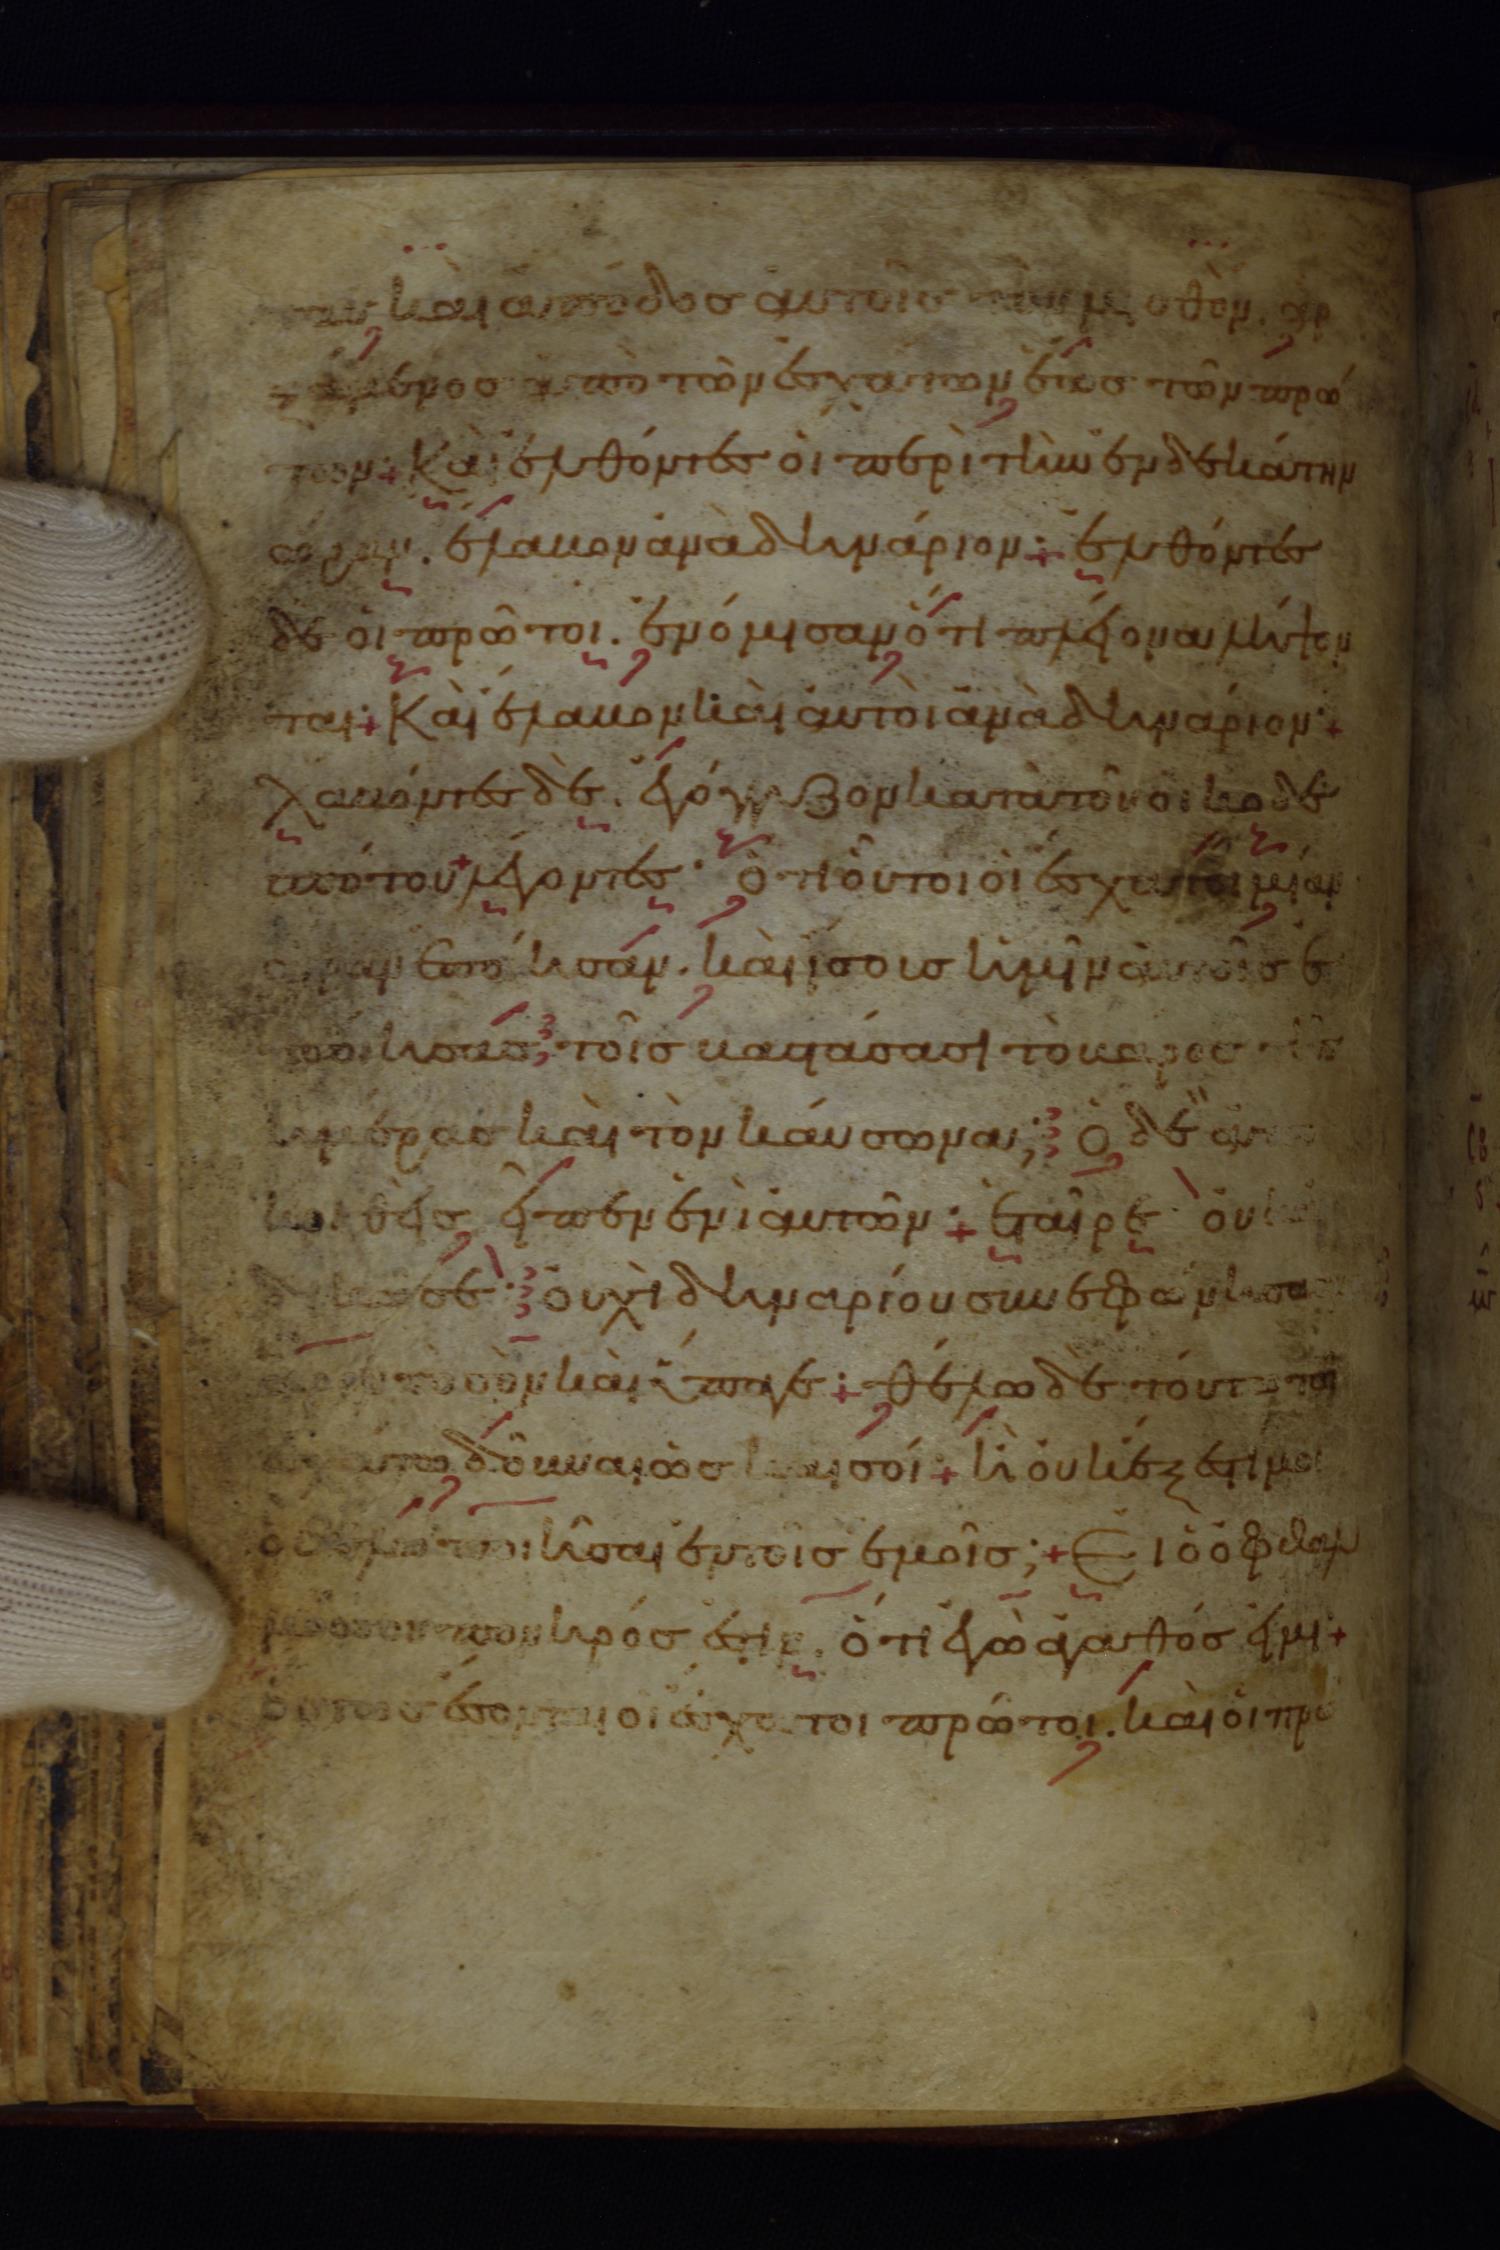 καὶ ἀπόδος αὐτοῖς τὸν μισθόν. ἀρ
ξάμενος ἀπὸ τῶν ἐσχάτων ἕως τῶν πρώ
των + Καὶ ἐλθόντες οἱ περὶ τὴν ἑνδεκάτην
ὥραν. ἔλαβον ἀνὰ δηνάριον + ἐλθόντες
δὲ οἱ πρῶτοι. ἐνόμισαν ὅτι πλείονα λήψον
ται + Καὶ ἔλαβον καὶ αὐτοὶ ἀνὰ δηνάριον +
λαβόντες δὲ. ἐγόγγυζον κατὰ τοῦ οἰκοδε
σπότου + λέγοντες · ὅτι οὗτοι οἱ ἔσχατοι μίαν
ὥραν ἐποίησαν. καὶ ἴσους ἡμῖν αὐτοὺς ἐ
ποίησας τοῖς βαστάσασι τὸ βάρος τῆς
ἡμέρας καὶ τὸν καύσωνα; ὁ δὲ ἀπο
κριθεὶς εἶπεν ἑνὶ αὐτῶν + ἑταῖρε οὐκ ἀ
δικῶ σε · οὐχὶ δηναρίου συνεφώνησα
τὸ σὸν καὶ ὕπαγε + θέλω δὲ τούτω τῷ
ἐσχάτω δοῦναι ὡς καὶ σοί + ἢ οὐκ ἔξεστί μοι
ὃ θέλω ποιῆσαι ἐν τοῖς ἐμοῖς; + Εἰ ὁ ὀφθαλ
μός σου πονηρός ἐστιν. ὅτι ἐγὼ ἀγαθός εἰμι +
οὕτως ἔσονται οἱ ἔσχατοι πρῶτοι. καὶ οἱ πρῶ